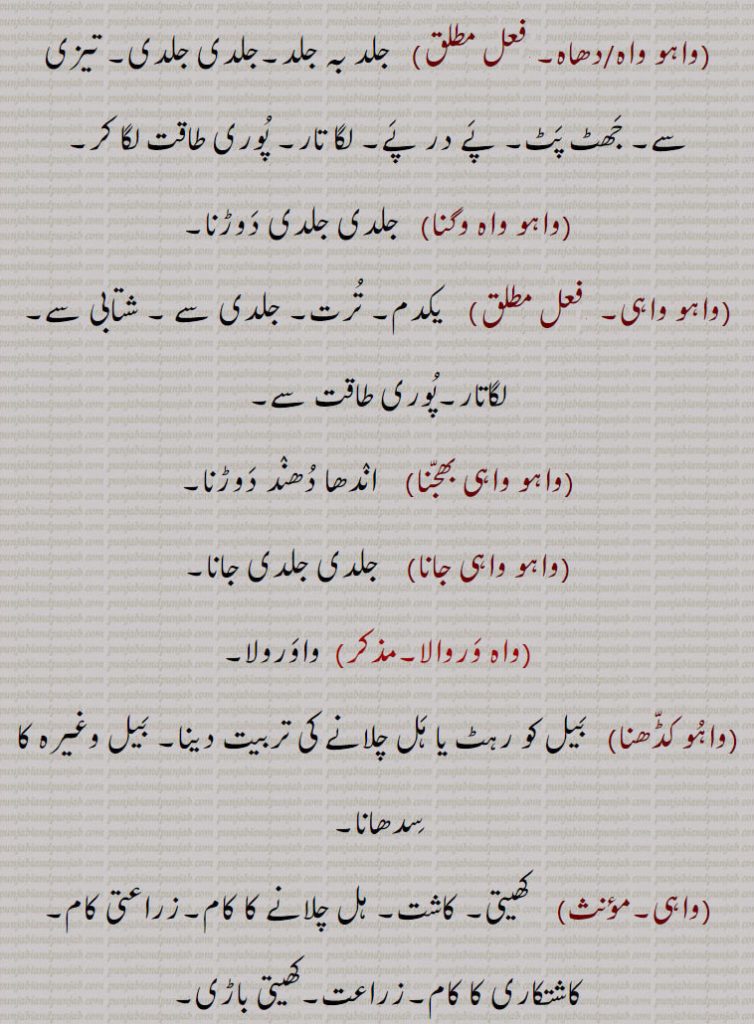 (واہو واہ/دھاہ۔ فعل مطلق) جلد بہ جلد۔جلدی جلدی۔ تیزی
سے۔ جَھٹ پَٹ۔ پَے در پَے۔ لگا تار۔ پُوری طاقت لگا کر۔
(واہو واہ وگنا) جلدی جلدی دَوڑنا۔
(واہو واہی۔ فعل مطلق) یکدم۔ تُرت۔ جلدی سے ۔ شتابی سے۔
لگاتار۔پُوری طاقت سے۔
(واہو واہی بھجّنا) انْدھا دُھنْد دَوڑنا۔
(واہو واہی جانا) جلدی جلدی جانا۔
(واہ وَروالا۔مذکر) واوَرولا۔
(واہُو کڈّھنا) بَیل کو رہٹ یا ہَل چلانے کی تربیت دینا۔ بَیل وغیرہ کا
سِدھانا۔
(واہی۔مؤنث) کھیتی۔ کاشت۔ ہل چلانے کا کام۔زراعتی کام۔
کاشتکاری کا کام۔زراعت۔کھیتی باڑی۔